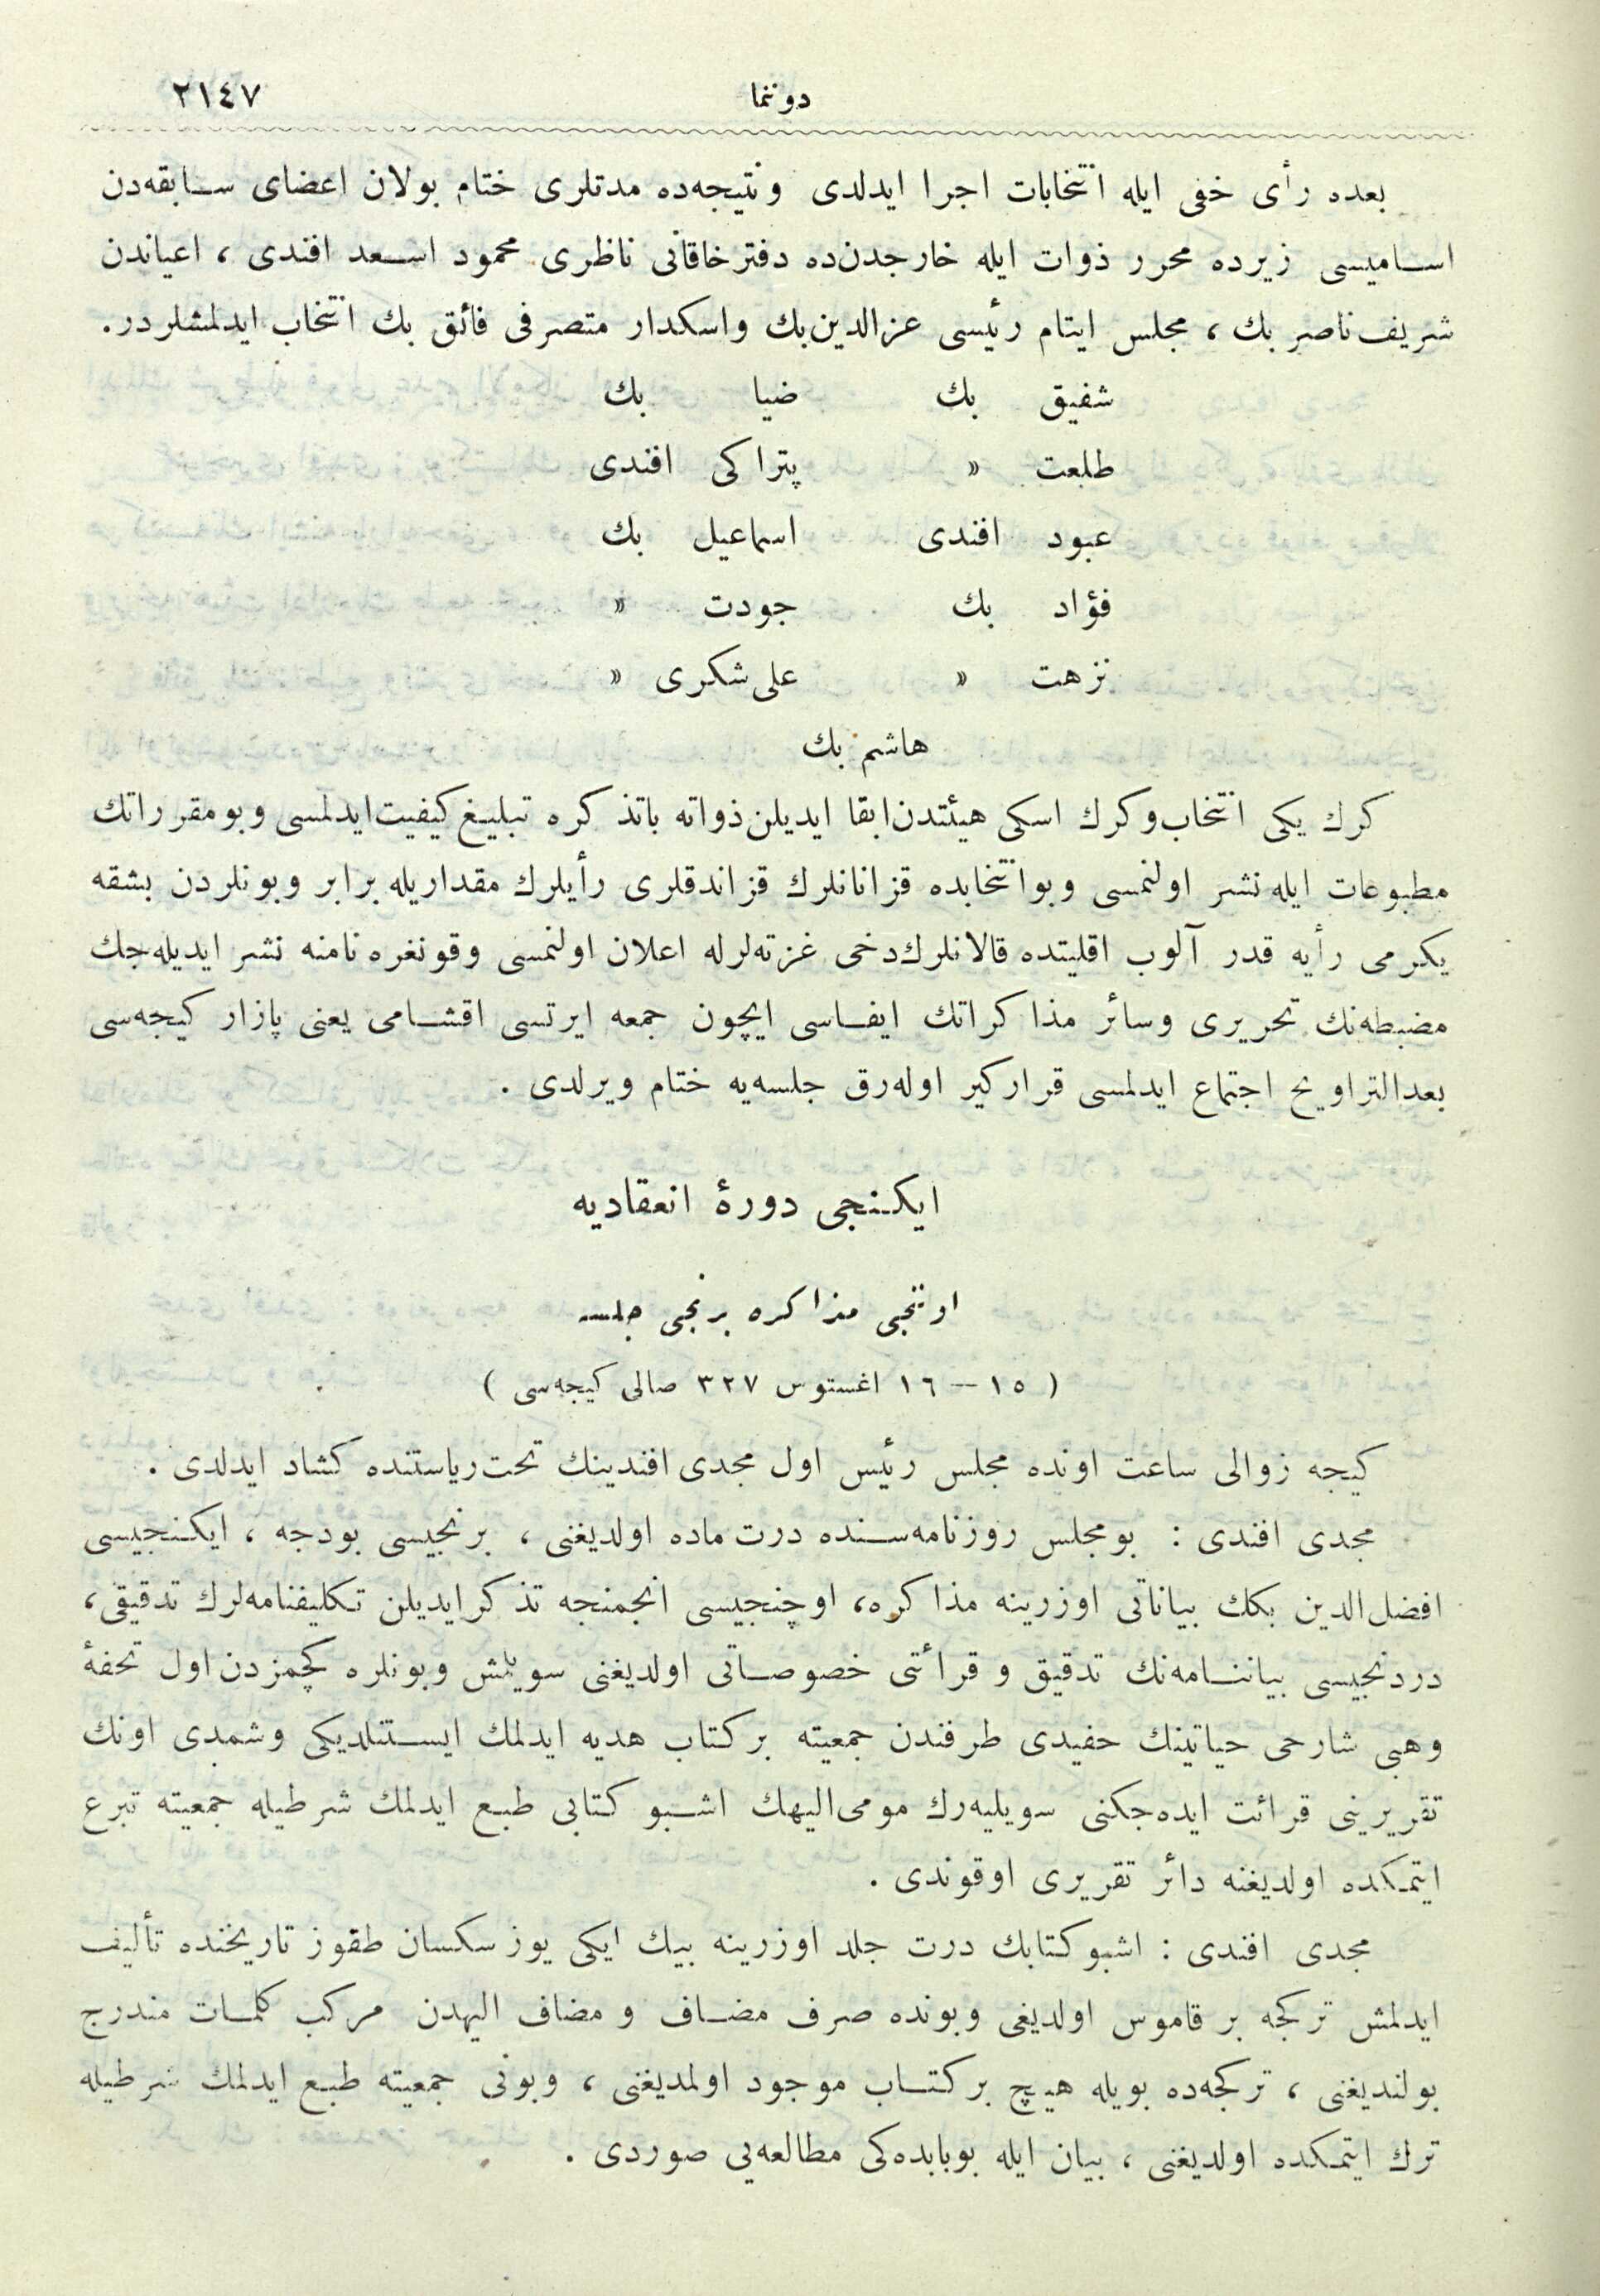 دوننما ٢١٤٧
بعده رأی خفی ایله انتخابات اجرا ایدلدی ونتیجه‌ده مدتلری ختام بولان اعضای سابقه‌دن
اسامیسی زیرده محرر ذوات ایله خارجدن‌ده دفترخاقانی ناظری محمود اسعد افندی ، اعیاندن
شریف ناصر بك ، مجلس ایتام رئیسی عزالدین‌بك واسكدار متصرفی فائق بك انتخاب ایدلمشلردر.
شفیق بك ضیا بك
طلعت » پتراكی افندی
عبود افندی اسماعیل بك
فؤاد بك جودت »
نزهت » علی شكری »
هاشم بك
كرك یكی انتخاب‌وكرك اسكی هیئتدن ابقا ایدیلن ذواته باتذكره تبلیغ كیفیت ایدلمسی وبومقرراتك
مطبوعات ایله نشر اولنمسی وبوانتخابده قزانانلرك قزاندقلری رأیلرك مقداریله برابر وبونلردن بشقه
یكرمی رأیه قدر آلوب اقلیتده قالانلرك‌دخی غزته‌لرله اعلان اولنمسی وقونغره نامنه نشر ایدیله‌جك
مضبطه‌نك تحریری وسائر مذاكراتك ایفاسی ایچون جمعه ایرتسی اقشامی یعنی پازار كیجه‌سی
بعدالتراویح اجتماع ایدلمسی قراركیر اوله‌رق جلسه‌یه ختام ویرلدی .
ایكنجی دورۀ انعقادیه
اوتنجی مذاكره برنجی جلسه
( ١٥ — ١٦ اغستوس ٣٢٧ صالی كیجه‌سی )
كیجه زوالی ساعت اونده مجلس رئیس اول مجدی افندینك تحت‌ریاستنده كشاد ایدلدی .
مجدی افندی : بومجلس روزنامه‌سنده درت ماده اولدیغنی ، برنجیسی بودجه ، ایكنجیسی
افضل‌الدین بكك بیاناتی اوزرینه مذاكره، اوچنجیسی انجمنجه تذكرایدیلن تكلیفنامه‌لرك تدقیقی،
دردنجیسی بیاننامه‌نك تدقیق و قرائتی خصوصاتی اولدیغنی سویلمش وبونلره كچمزدن اول تحفۀ
وهبی شارحی حیاتینك حفیدی طرفندن جمعیته بركتاب هدیه ایدلمك ایستنلدیكی وشمدی اونك
تقریرینی قرائت ایده‌جكنی سویلیه‌رك مومی‌الیهك اشبو كتابی طبع ایدلمك شرطیله جمعیته تبرع
ایتمكده اولدیغنه دائر تقریری اوقوندی .
مجدی افندی : اشبوكتابك درت جلد اوزرینه بیك ایكی یوز سكسان طقوز تاریخنده تألیف
ایدلمش تركجه بر قاموس اولدیغی وبونده صرف مضاف و مضاف الیهدن مركب كلمات مندرج
بولندیغنی ، تركجه‌ده بویله هیچ بركتاب موجود اولمدیغنی ، وبونی جمعیته طبع ایدلمك شرطیله
ترك ایتمكده اولدیغنی ، بیان ایله بوبابده‌كی مطالعه‌یی صوردی .